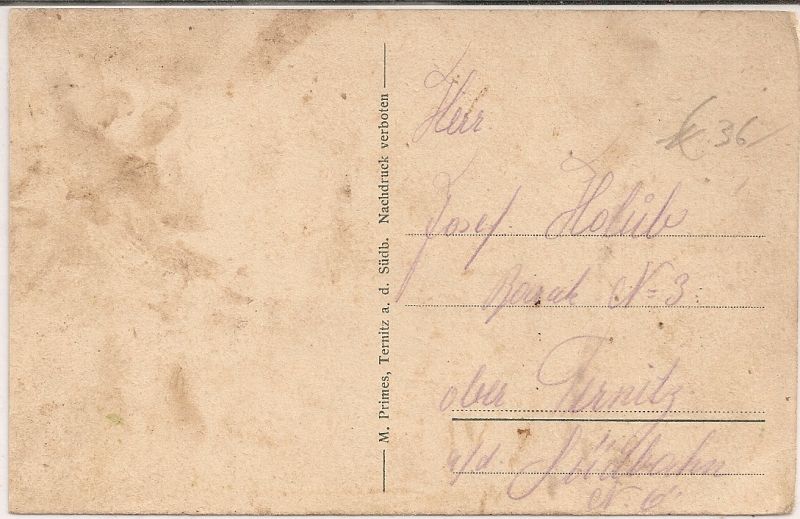 M. Primes, Ternitz a. d. Südb. Nachdruck verboten
Herr
36
Josef Holub
No 3
ober Ternitz
a/d Südbahn
N. Ö.